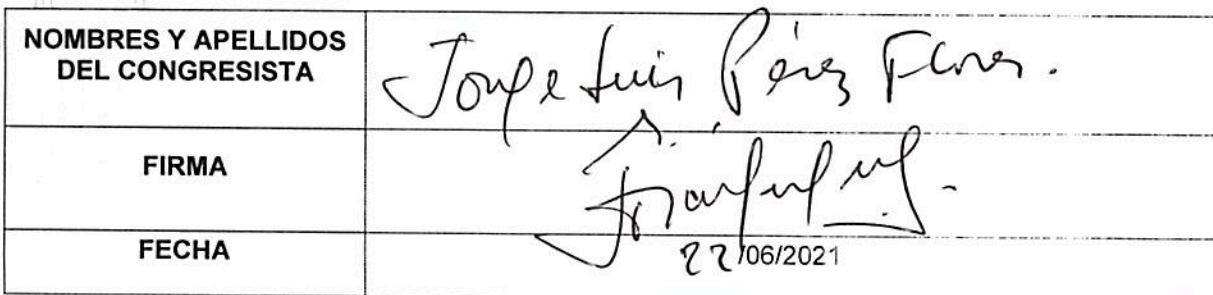 NOMBRES Y APELLIDOS
DEL CONGRESISTA
Jorge Luis Pérez Flores.
FIRMA
FECHA
22/06/2021